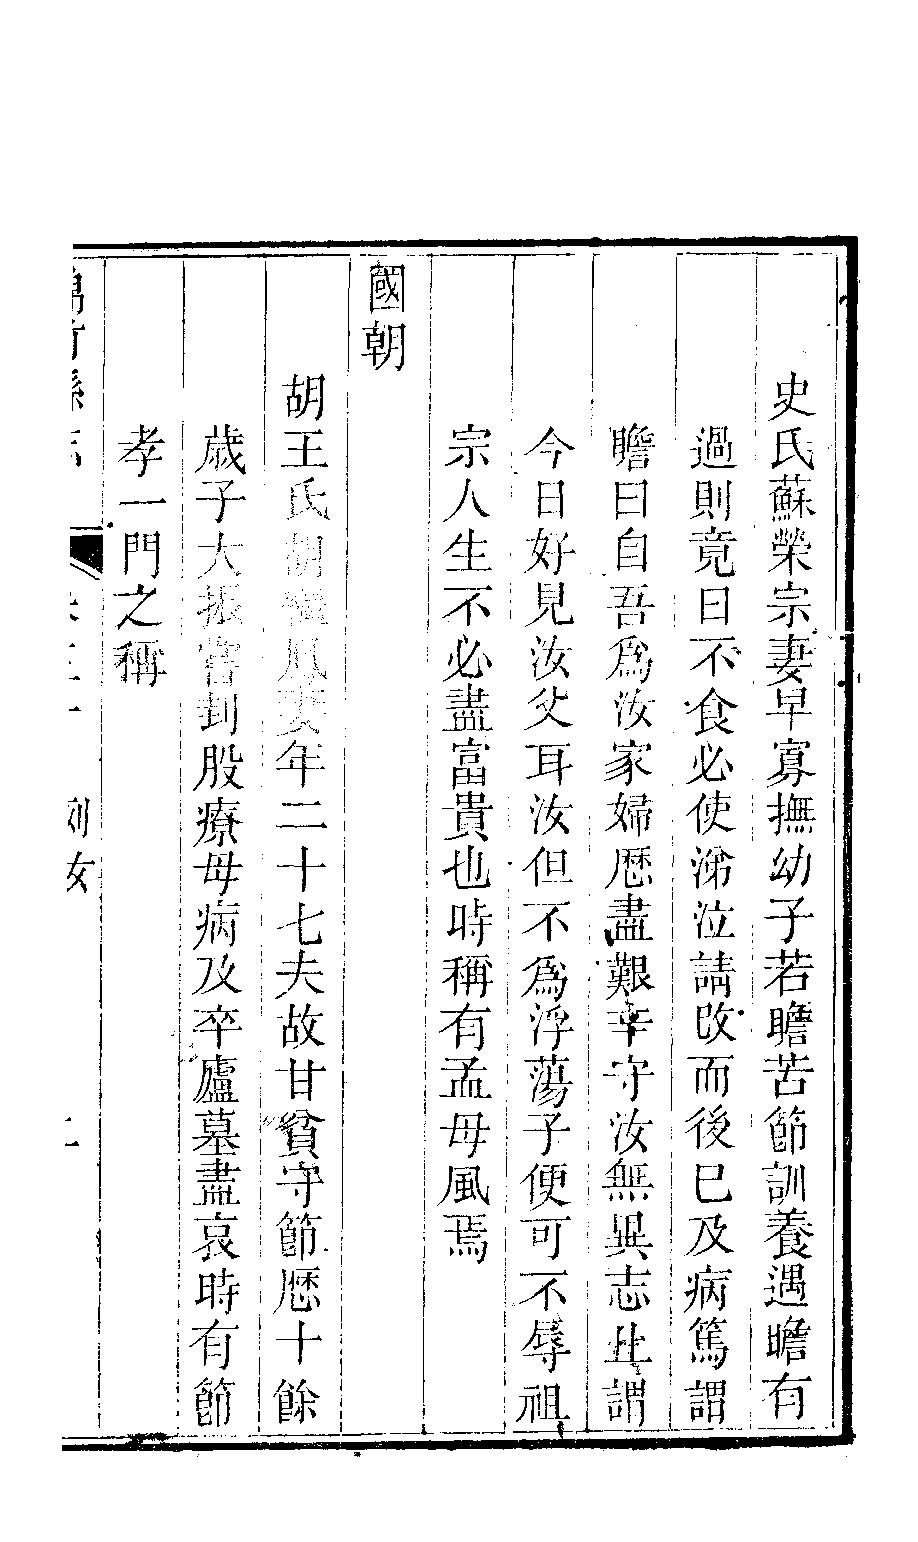 史氏蘇榮宗妻早寡撫幼子若瞻苦節訓養遇瞻有
過則竟日不食必使涕泣請改而後已及病篤謂
瞻曰自吾爲汝家婦歷盡艱辛守汝無異志此謂
今日好見汝父耳汝但不爲浮蕩子便可不辱祖
宗人生不必盡富貴也時稱有孟母風焉
國朝
胡王氏胡鳳妻年二十七夫故甘貧守節歷十餘
歲子大振嘗刲股療母病及卒廬墓盡哀時有節
孝一門之稱
竹縣志 卷三十 列女